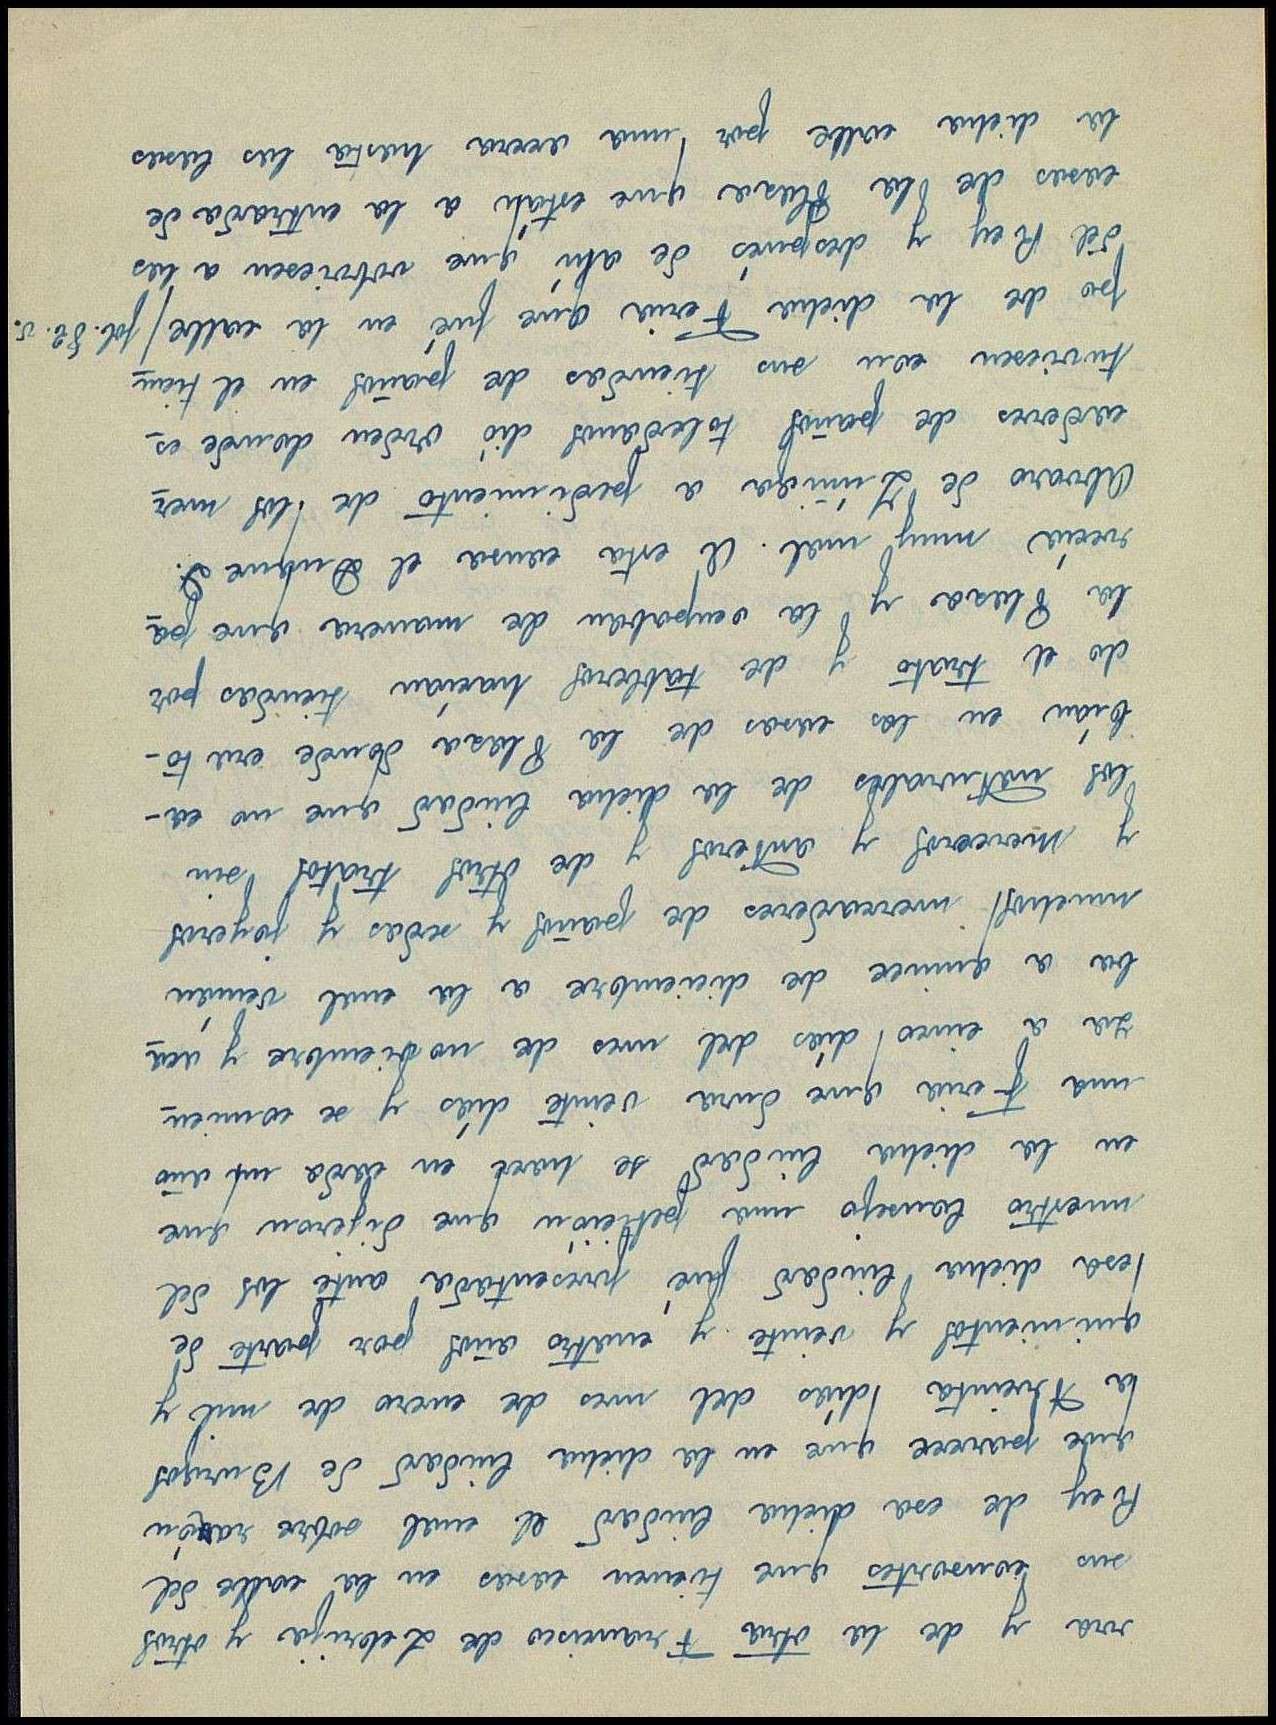 rra y de la otra Francisco de Lebrija y otros
sus consortes que tienen casas en la calle del
Rey de esa dicha Ciudad el cual sobre razón
que parece que en la dicha Ciudad de Burgos
la treinta dias del mes de enero de mil y
quinientos y veinte y cuatro años por parte de
esa dicha Ciudad fué presentada ante los del
nuestro Consejo una petición que dijeron que
en la dicha Ciudad se hace en cada un año
una Feria que dura veinte días y se comien-
za a cinco días del mes de noviembre y aca-
ba a quince de diciembre a la cual venían
muchos mercaderes de paños y sedas y joyeros
y merceros y de otros tratos sin
los naturales de la dicha Ciudad que no ca-
bían en las casas de la Plaza donde era to-
do el trato y de tableros hacían tiendas por
la Plaza y la ocupaban de manera que pa-
recía muy mal. A esta causa el Duque D.
Alvaro de Zúñiga a pedimiento de los mer-
caderes de paños toledanos dió orden donde es-
tuviesen con sus tiendas de paños en el tiem-
po de la dicha Feria que fué en la calle / fol. 82. v.
del Rey y después de ahí que volviesen a las
casas de la Plaza que están a la entrada de
la dicha calle por una acera hasta las casas